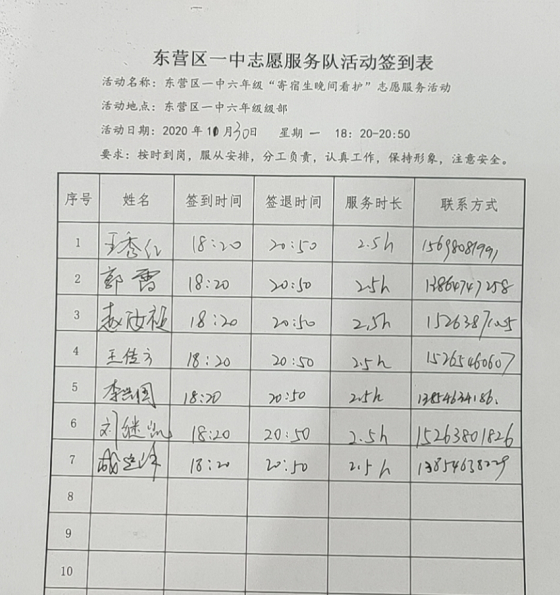 东营区一中志愿服务队活动签到表
活动名称：东营区一中六年级“寄宿生晚间看护”志愿服务活动
活动地点：东营区一中六年级级部
活动日期：2020年11月30日 星期一 18：20-20:50
要求：按时到岗，服从安排，分工负责，认真工作，保持形象，注意安全。
序号 姓名 签到时间 签退时间 服务时长 联系方式
1 18:20 20:50 2.5h
2 郭雷 18:20 20:50 2.5h 13864747258
3 18:20 20:50 2.5h
4 王佳方 18:20 20:50 2.5h 15265460607
5 18:20 20:50 2.5h
6 刘继凯 18:20 20:50 2.5h 15263801826
7 18:20 20:50 2.5h
8
9
10